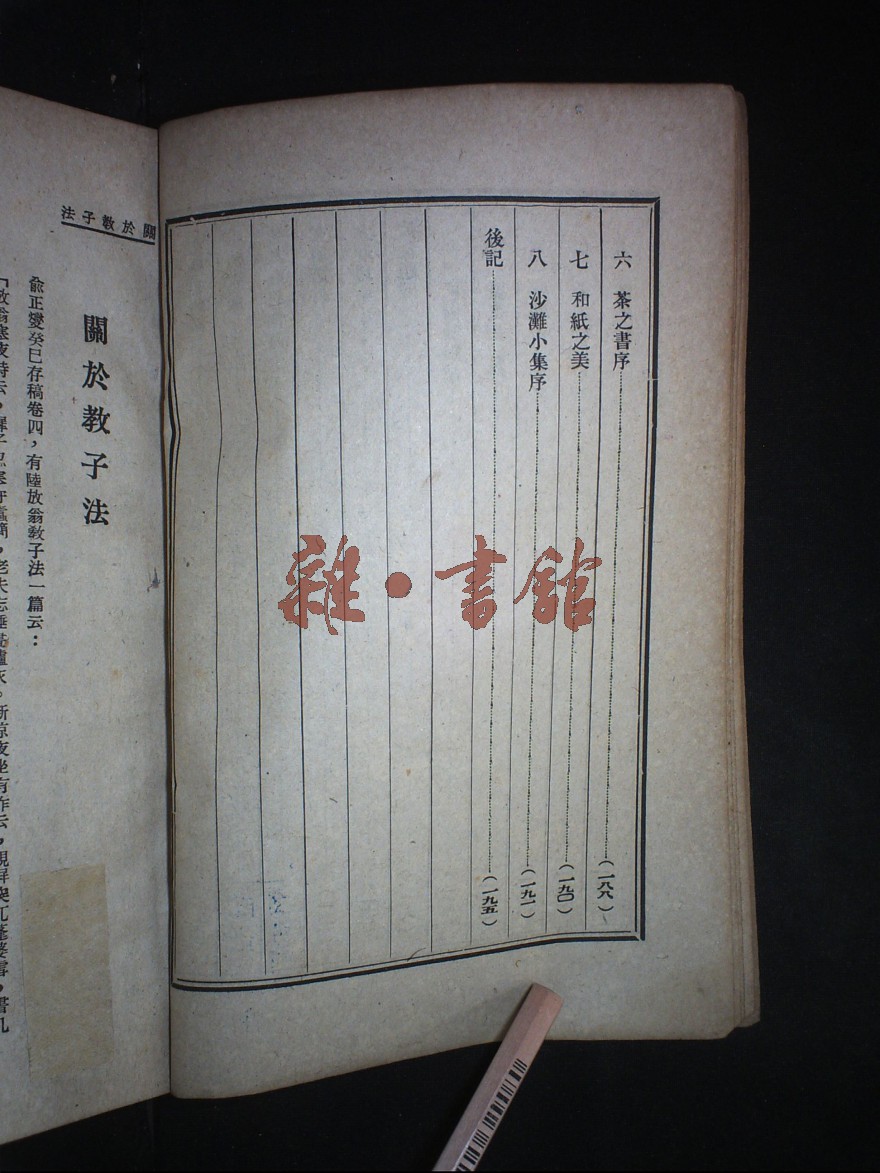 六　茶之書序……（一八八）
七　和紙之美……（一九〇）
八　沙灘小集序……（一九一）
後記……（一九五）
關於教子法
關於教子法
俞正燮癸巳存稿卷四，有陸放翁教子法一篇云：
雜·書館